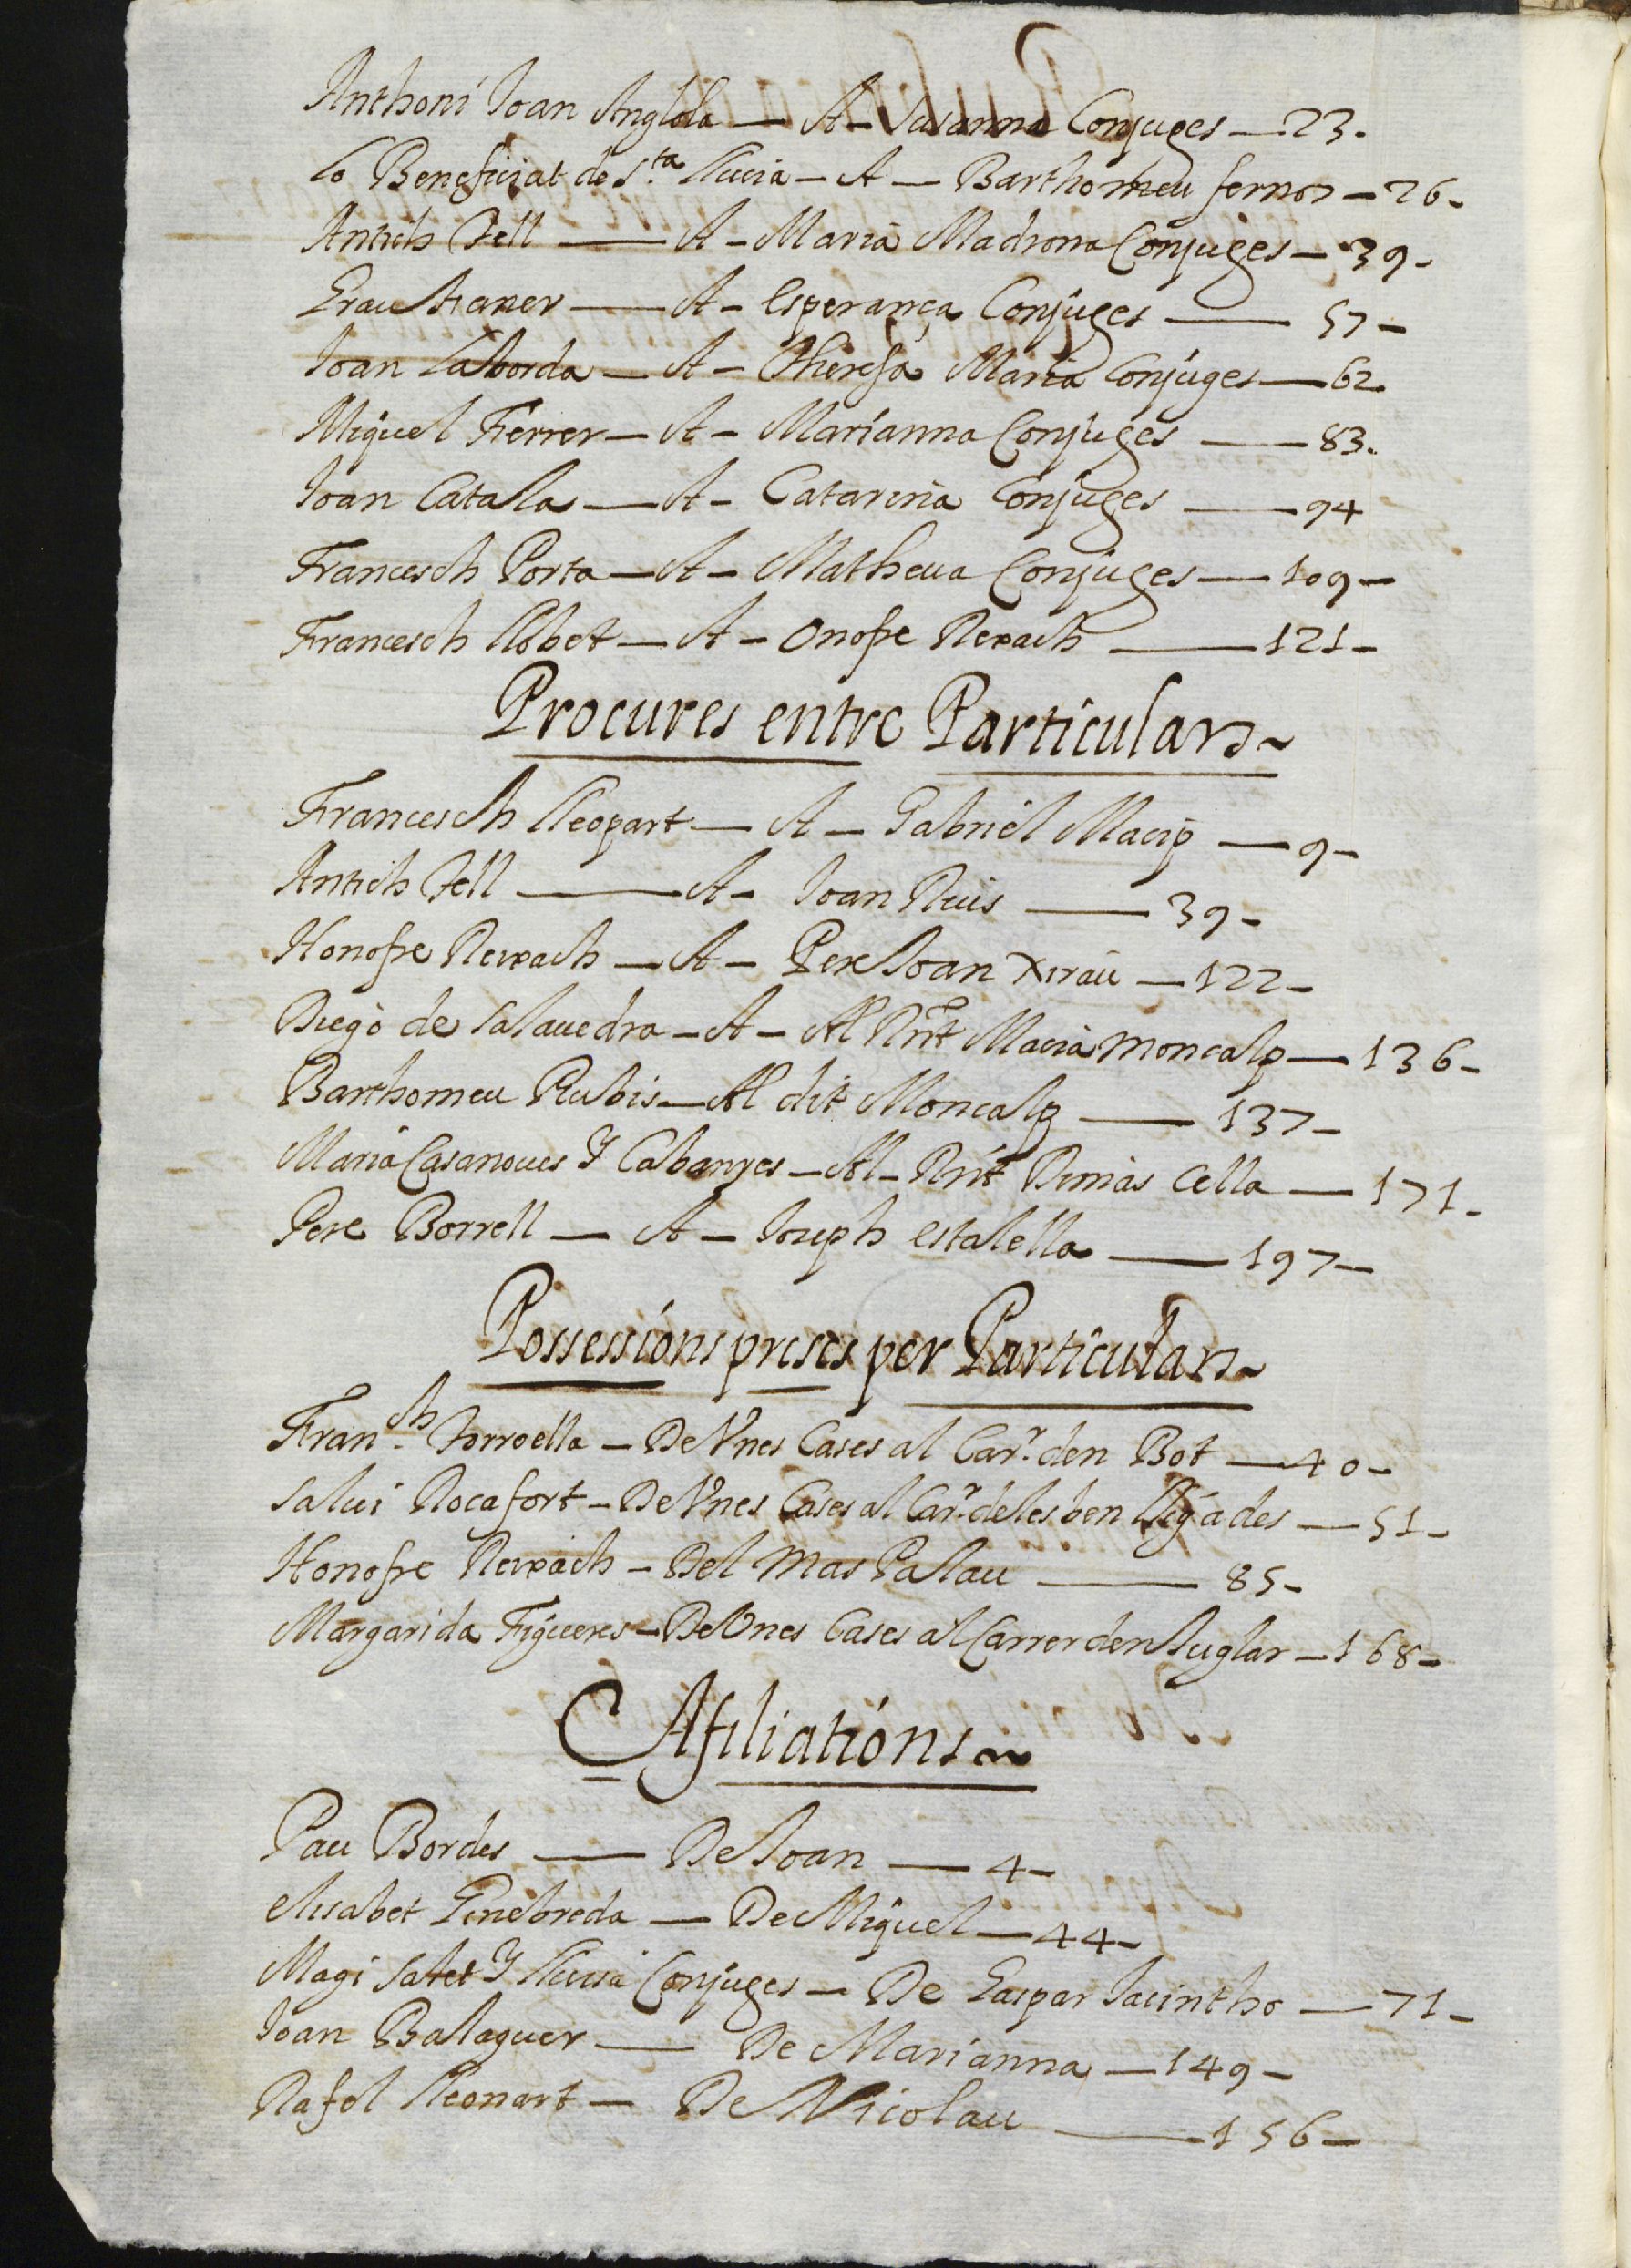 Anthoni Joan Anglela — A — Susanna Conjuges — 23.
Lo Beneficiat de S.ta Llucia — A — Barthomeu ferrer — 26 —
Antich Fell — A — Maria Madrona Conjuges — 39 —
Grau — A — Esperança Conjuges — 57 —
Joan Laborda — A — Theresa Maria Conjuges — 62
Miquel Ferrer — A — Marianna Conjuges — 83.
Joan Catala — A — Catarina Conjuges — 94
Francesch Porta — A — Matheua Conjuges — 109 —
Francesch Llobet — A — Onofre Rexach — 121 —
Procures entre Particulars ~
Francesch Lleopart — A — Gabriel Macip — 9 —
Antich Fell — A — Joan Rius — 39 —
Honofre Reixach — A — Pere Joan Xirau — 122 —
Diego de Salauedra — A — Al Rnt Macia Moncalp — 136 —
Barthomeu Rubis — Al dit Moncalp — 137 —
Maria Casanoues Y Cabanyes — Al — Rnt Dimas Cella — 171 —
Pere Borrell — A — Joseph Estalella — 197 —
Possessions preses per Particulars ~
Fran.ch Torroella — De Vnes Cases al Car.r den Bot — 40 —
Salui Rocafort — De Vnes Cases al Car.r de les ben lligades — 51 —
Honofre Reixach — Del Mas Palau — 85 —
Margarida Figueres — De Vnes Cases al Carrer den Juglar — 168 —
Afiliations ~
Pau Bordes — De Joan — 4 —
Elisabet Ginebreda — De Miquel — 44 —
Magi Salet Y Llusia Conjuges — De Gaspar Jacintho — 71 —
Joan Balaguer — De Marianna — 149 —
Rafel Lleonart — De Nicolau — 156 —